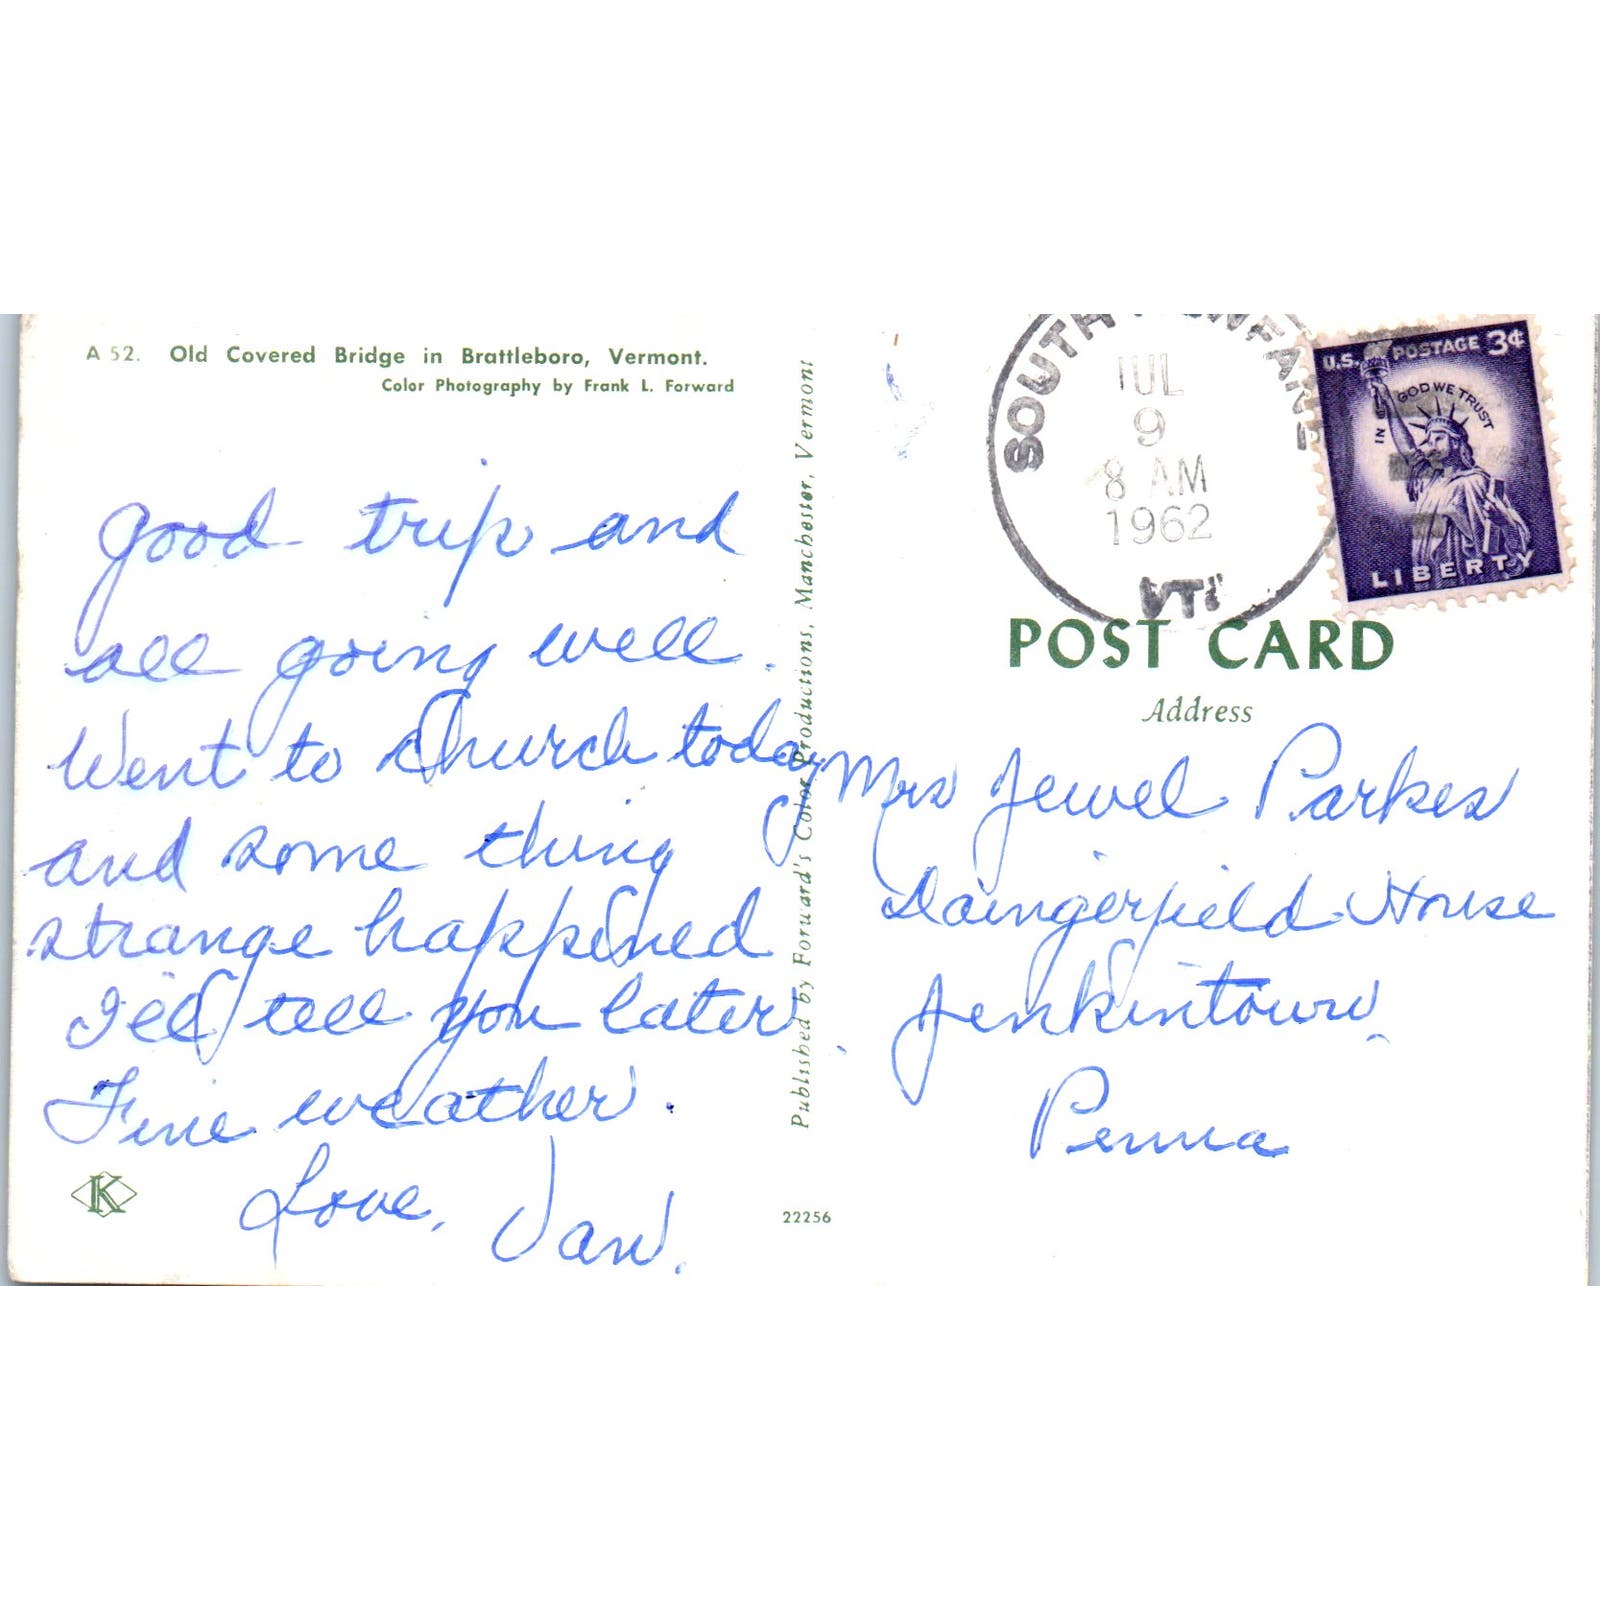 A 52. Old Covered Bridge in Brattleboro, Vermont.
Color Photography by Frank L. Forward
good trip and
all going well.
Went to Church today
and some thing
strange happened
I'll tell you later.
Fine weather.
Love, Van.
K
Published by Forward's Color Productions, Manchester, Vermont
22256
SOUTH
JUL
9
8 AM
1962
VT.
U.S. POSTAGE 3¢
IN GOD WE TRUST
LIBERTY
POST CARD
Address
Mrs Jewel Parkes
Daingerfield House
Jenkintown,
Penna